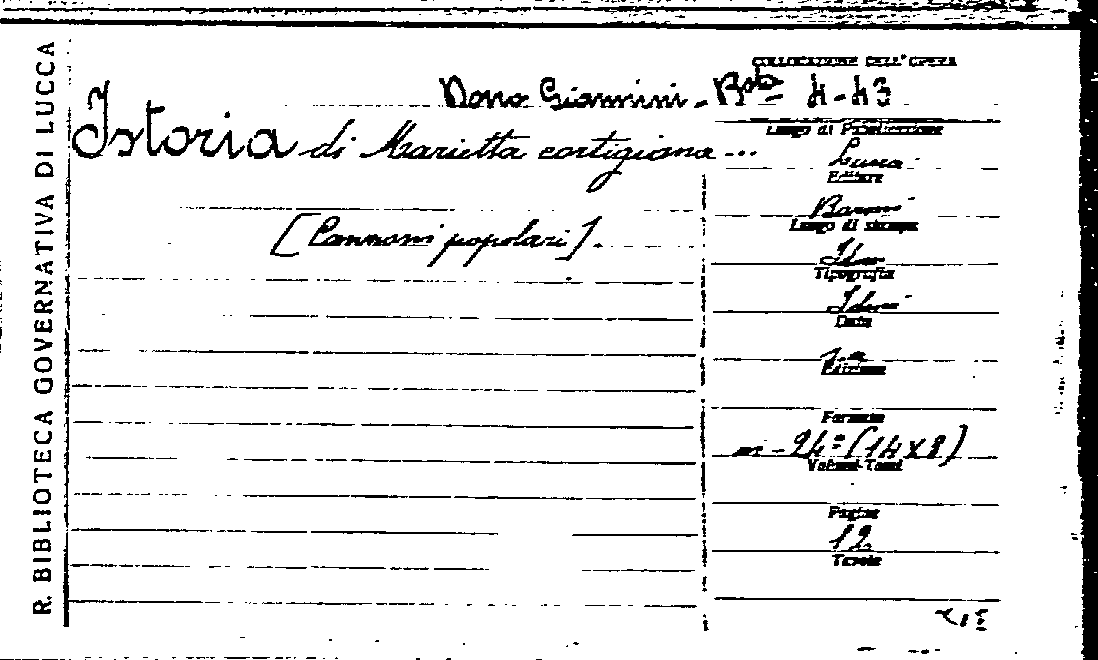 R. BIBLIOTECA GOVERNATIVA DI LUCCA
COLLOCAZIONE DELL'OPERA
Dono Giannini - Bta 4-43
Istoria di Marietta cortigiana...
[Canzoni popolari].
Luogo di Pubblicazione
Lucca
Editore
Baroni
Luogo di stampa
Idem
Tipografia
Idem
Data
Edizione
Formato
in-24° (14x8)
Volumi-Tomi
Pagine
12
Tavole